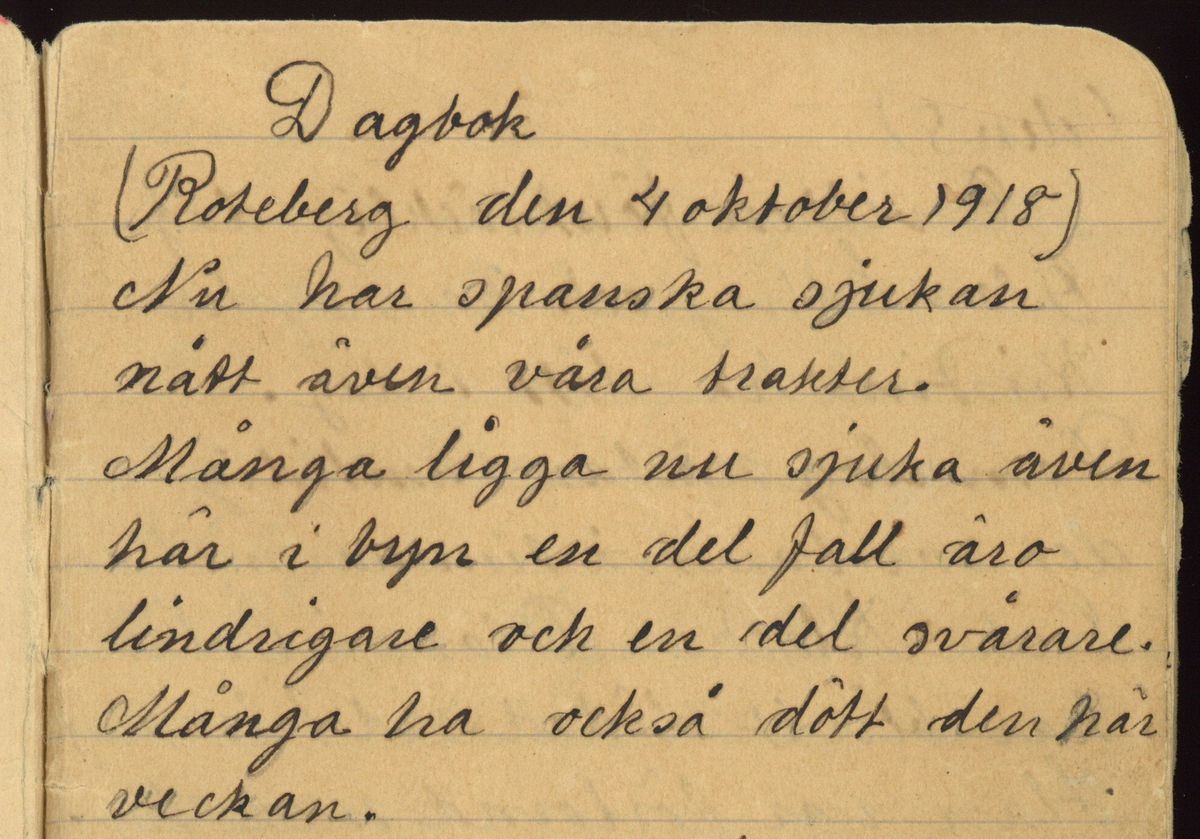 Dagbok
(Roteberg den 4 oktober 1918)
Nu har spanska sjukan
nått även våra trakter.
Många ligga nu sjuka även
här i byn en del fall äro
lindrigare och en del svårare.
Många ha också dött den här
veckan.